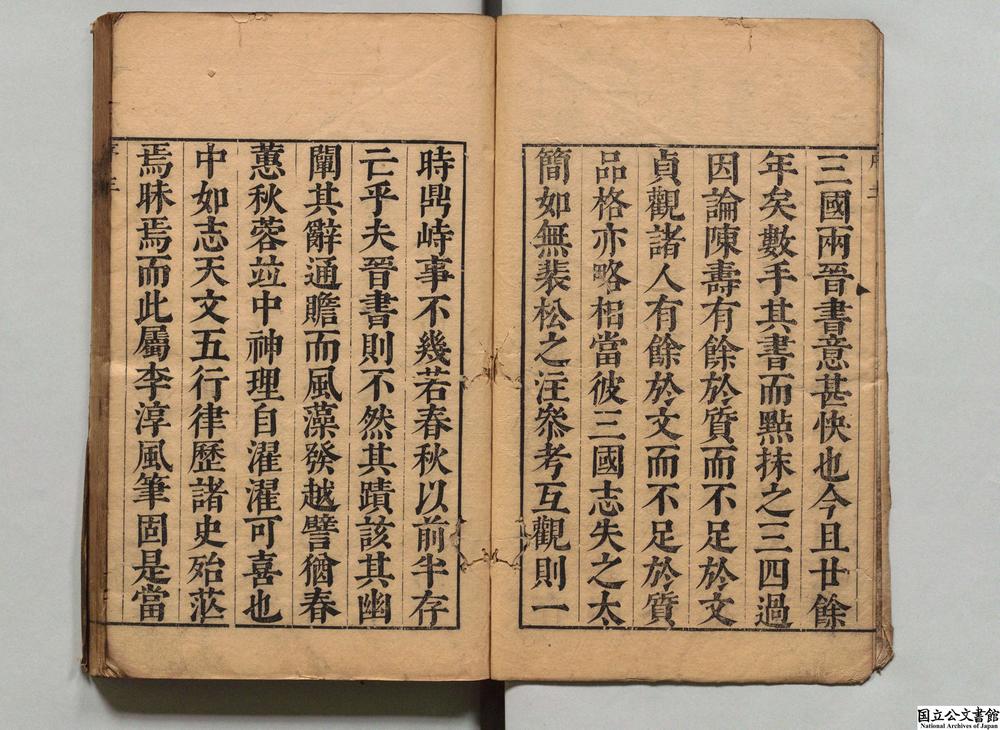 三國兩晉書意甚快也今且廿餘
年矣數手其書而點抹之三四過
因論陳壽有餘於質而不足於文
貞觀諸人有餘於文而不足於質
品格亦略相當彼三國志失之太
簡如無裴松之汪參考互觀則一
時鼎峙事不幾若春秋以前半存
亡乎夫晉書則不然其蹟該其幽
闡其辭通贍而風藻發越譬猶春
蕙秋蓉竝中神理自濯濯可喜也
中如志天文五行律歷諸史殆茫
焉昧焉而此屬李淳風筆固是當
国立公文書館
National Archives of Japan